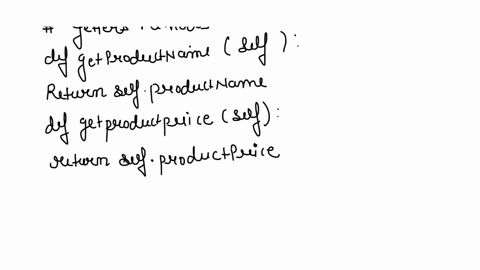 def getProductName (self):
Return self.productName
def getproductprice (self):
return self.productPrice